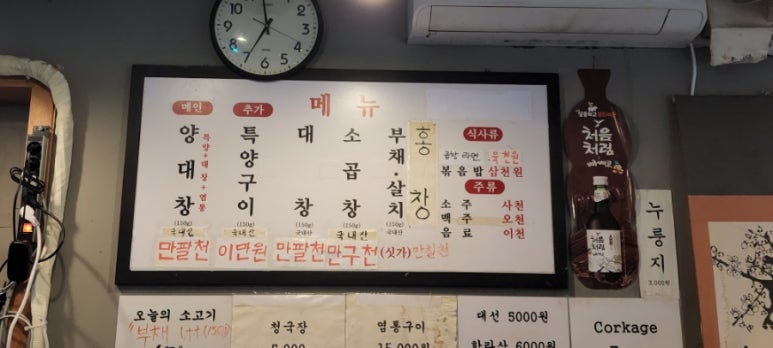 메뉴
메인
양대창
특양+대창+염통
(150g)
국내산
만팔천
추가
특양구이
(150g)
국내산
이만원
대창
(150g)
국내산
만팔천
소곱창
(150g)
국내산
만구천
부채·살치
(150g)
국내산
(싯가)
홍창
식사류
곱창 라면
볶음밥 삼천원
주류
소주 사천
맥주 오천
음료 이천
처음처럼
누룽지
3,000원
오늘의 소고기
부채 1++(150g)
청국장
염통구이
15,000원
대선 5000원
한라산 6000원
Corkage